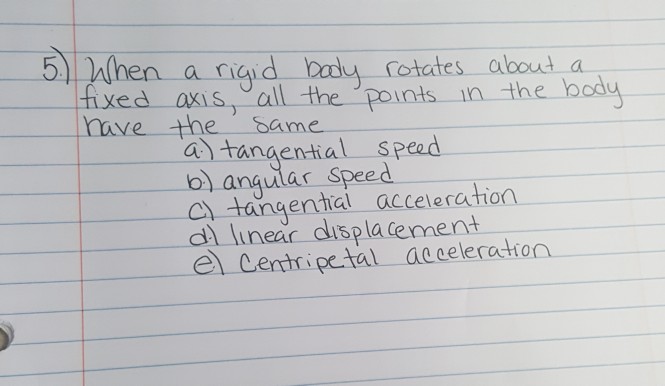 5.) When a rigid body rotates about a
fixed axis, all the points in the body
have the same
a.) tangential speed
b.) angular speed
c) tangential acceleration
d.) linear displacement
e) Centripetal acceleration